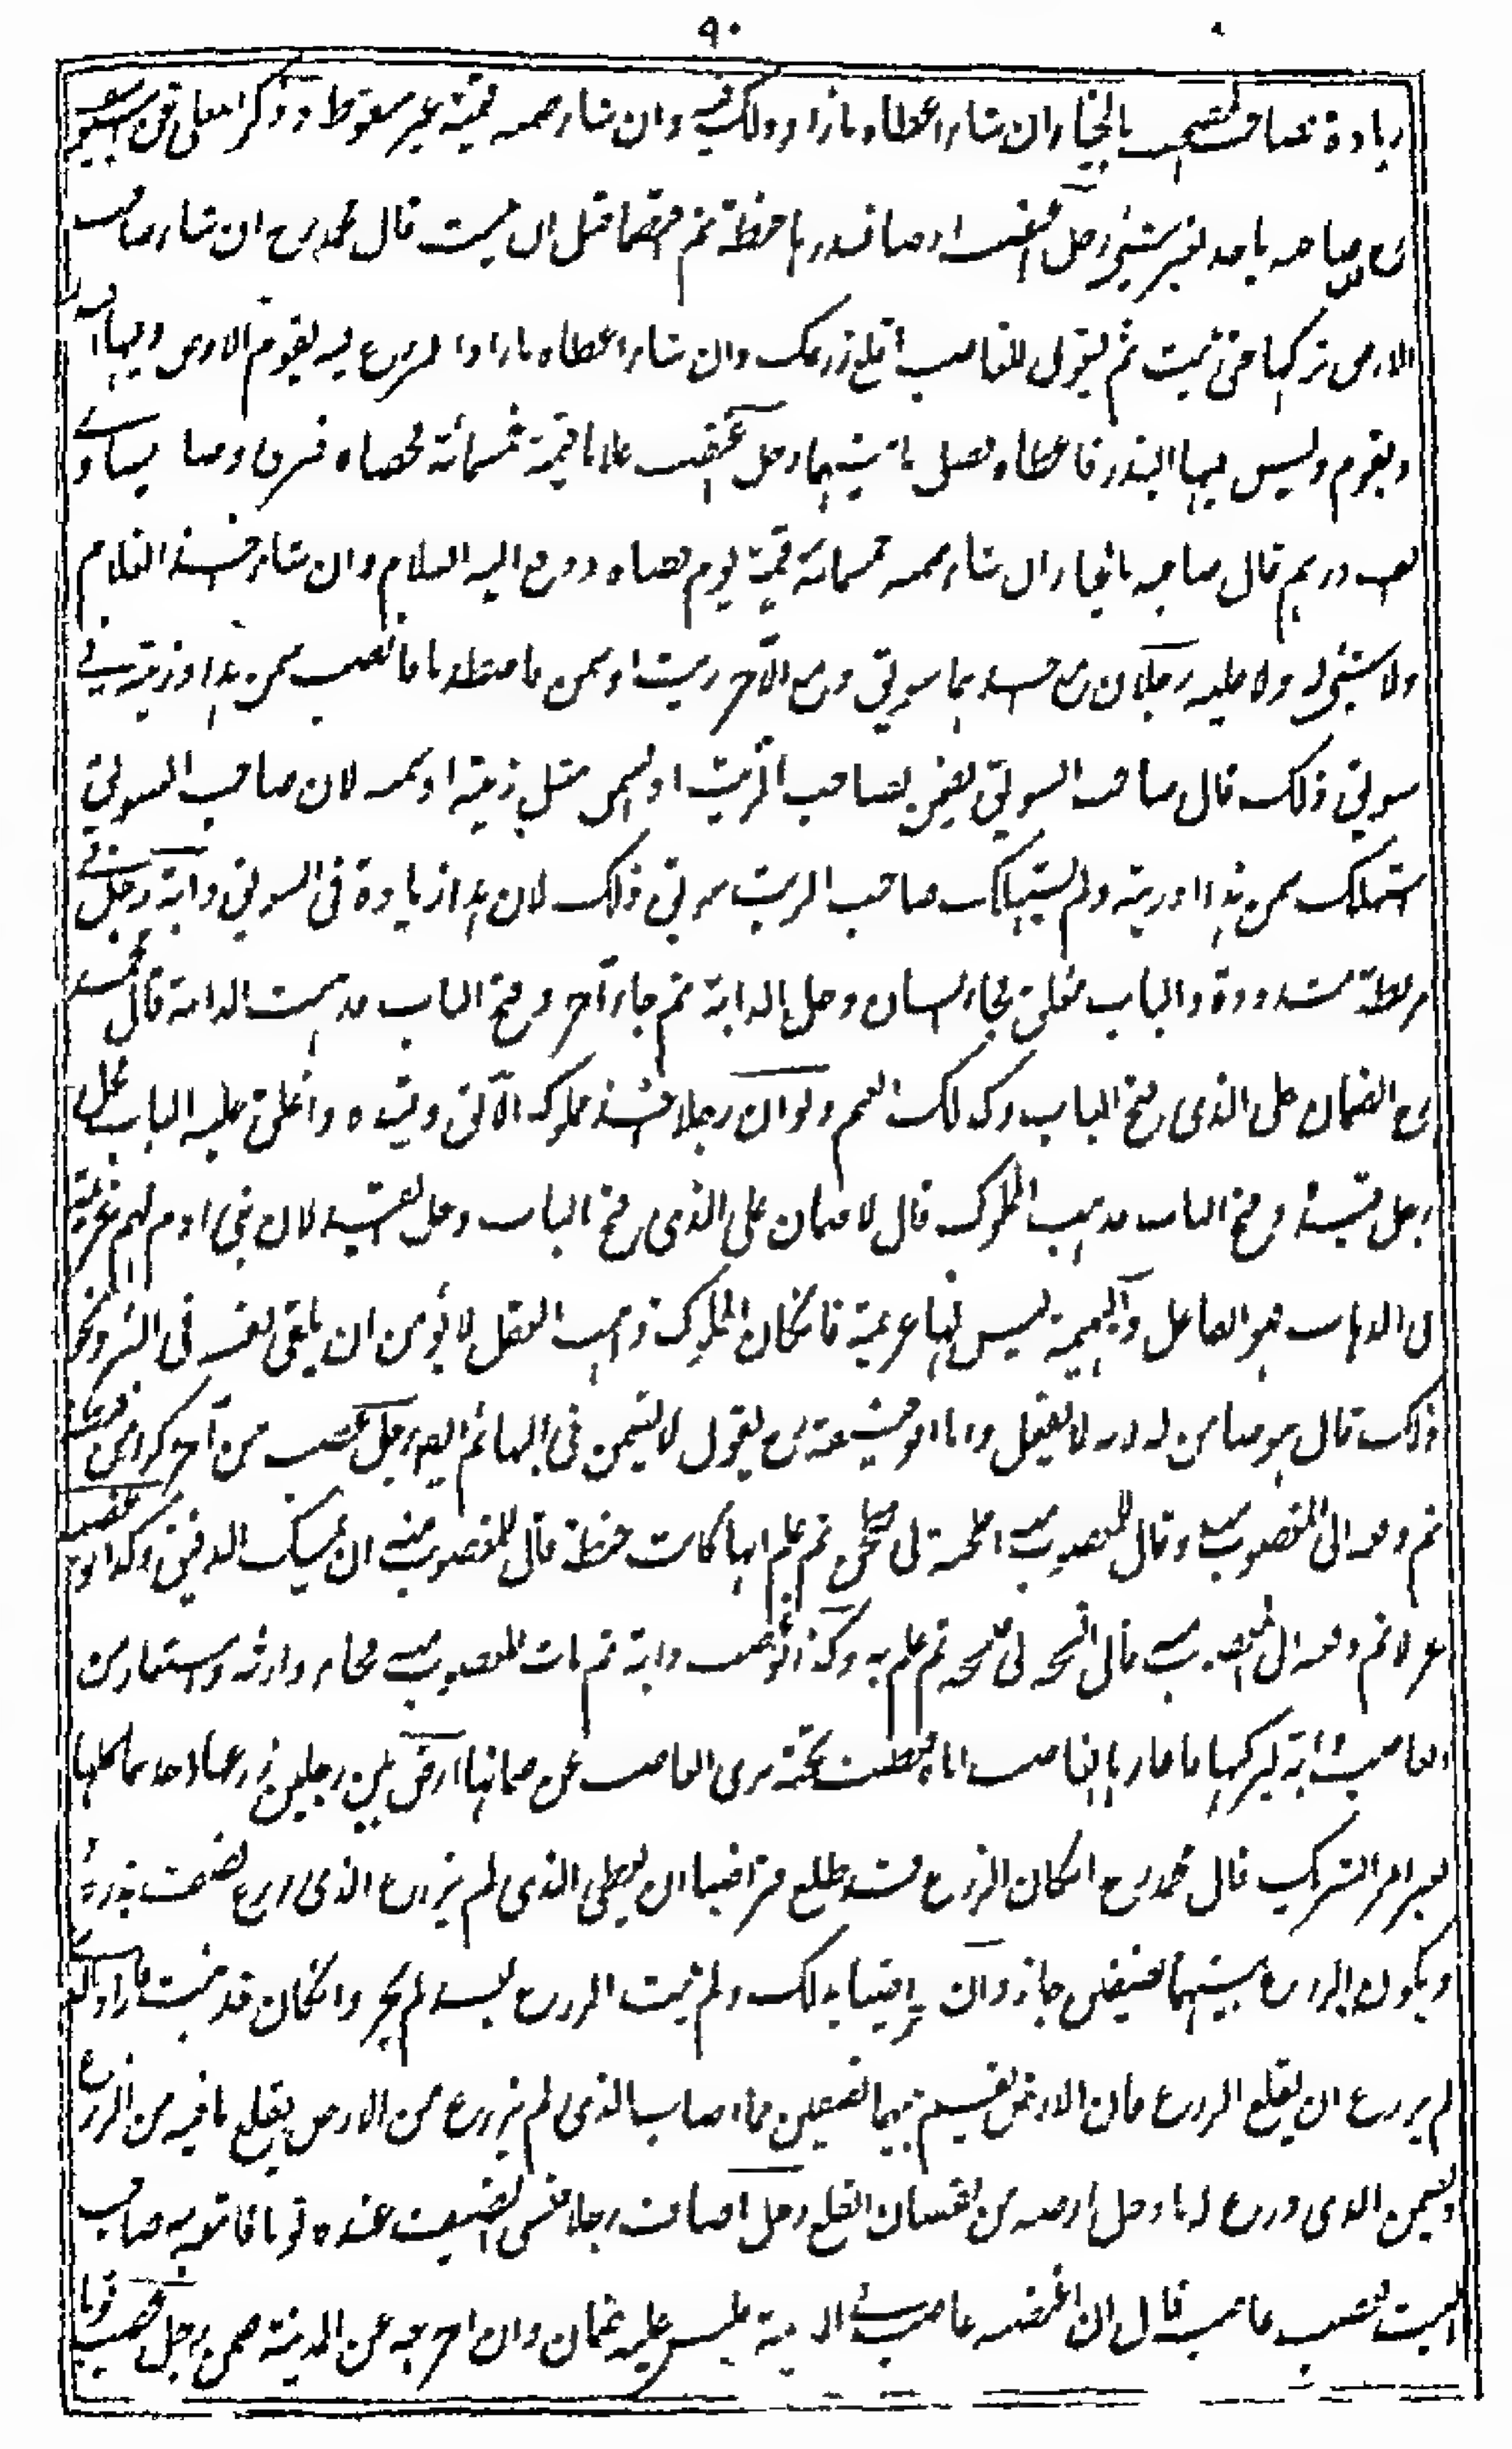 ٩٠
زيادة فصاحب المصحف بالخيار ان شاء اعطاه ما زاد ذلك فيه وان شاء ضمنه قيمته غير منقوط وذكر المعلى عن ابى
صاحبه ياخذ بغير شيئ رجل اغتصب ارضا فبذرها حنطة ثم اختصما قبل ان تنبت قال محمد رح ان شاء صاحب
الارض تركها حتى تنبت ثم يقول للغاصب اقلع زرعك وان شاء اعطاه ما زاد الزرع فيه يقوم الارض وفيها
ويقوم وليس فيها البذر فاعطاه فضل ما بينهما رجل اغتصب غلاما قيمته خمسمائة فخصاه فبرئ وصار يساوى
الف درهم قال صاحبه بالخيار ان شاء ضمنه خمسمائة قيمته يوم خصاه ودفع اليه الغلام وان شاء اخذ الغلام
ولا شيئ له ولا عليه رجلان مع احدهما سويق ومع الآخر زيت او سمن فاصطدما فانصب سمن هذا او زيته فى
سويق ذلك قال صاحب السويق يضمن لصاحب الزيت او السمن مثل زيته او سمنه لان صاحب السويق
استهلك سمن هذا او زيته ولم يستهلك صاحب الزيت سويق ذلك لان هذا زيادة فى السويق دابة رجل فى
مربطة مشدودة والباب مغلق فجاء انسان وحل الدابة ثم جاء آخر وفتح الباب فذهبت الدابة قال محمد
رح الضمان على الذى فتح الباب وكذلك الغنم ولو ان رجلا اخذ مملوكه الآبق وقيده واغلق عليه الباب فحل
رجل قيده وفتح الباب فذهب المملوك قال لا ضمان على الذى فتح الباب وحل القيد لان بنى ادم لهم عزيمة
فى الذهاب هو الفاعل والبهيمة ليس لها عزيمة فان كان المملوك ذاهب العقل لا يؤمن ان يلقى نفسه فى البئر ونحو
ذلك قال هو ضامن له لانه لا يعقل واما ابو حنيفة رح يقول لا يضمن فى البهائم ايضا رجل غصب من آخر
ثم دفعه الى المغصوب منه وقال للمغصوب منه اطحنه لى فطحن ثم علم انها كانت حنطة قال للمغصوب منه ان يمسك الدقيق وكذا لو غصب
غزلا ثم دفعه الى المغصوب منه قال انسجه لى فنسجه ثم علم به وكذا لو غصب دابة ثم مات المغصوب منه فجاء وارثه واستعار من
الغاصب دابة ليركبها فاعارها الغاصب اياه فعطبت تحته برئ الغاصب عن ضمانها ارض بين رجلين زرعها احدهما كلها
بغير امر الشريك قال محمد رح ان كان الزرع قد طلع فتراضيا ان يعطى الذى لم يزرع الذى زرع نصف بذره
ويكون الزرع بينهما نصفين جاز وان تراضيا بذلك ولم ينبت الزرع بعد لم يجز وان كان قد نبت فاراد الذى
لم يزرع ان يقلع الزرع فان الارض تقسم بينهما نصفين فما اصاب الذى لم يزرع من الارض يقلع ما فيه من الزرع
ويضمن الذى زرع له ما دخل ارضه من نقصان القلع رجل اضاف رجلا فنسى الضيف عنده ثوبا فاتبعه صاحب
البيت فغصبه غاصب قال ان اغتصبه غاصب فى المدينة فليس عليه ضمان وان اخرجه عن المدينة ضمن رجل غصب ثوبا